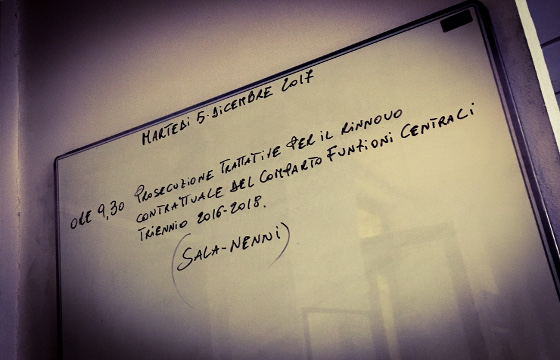 MARTEDì 5 DICEMBRE 2017
ORE 9,30 PROSECUZIONE TRATTATIVE PER IL RINNOVO
CONTRATTUALE DEL COMPARTO FUNZIONI CENTRALI
TRIENNIO 2016-2018.
(SALA-NENNI)